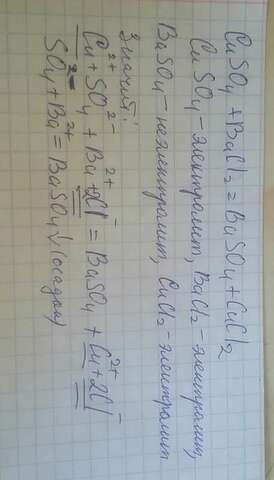 CuSO₄ + BaCl₂ = BaSO₄ + CuCl₂
CuSO₄ - электролит, BaCl₂ - электролит,
BaSO₄ - неэлектролит, CuCl₂ - электролит
Значит:
Cu²⁺ + SO₄²⁻ + Ba²⁺ + 2Cl⁻ = BaSO₄ + Cu²⁺ + 2Cl⁻
SO₄²⁻ + Ba²⁺ = BaSO₄↓ (осадок)